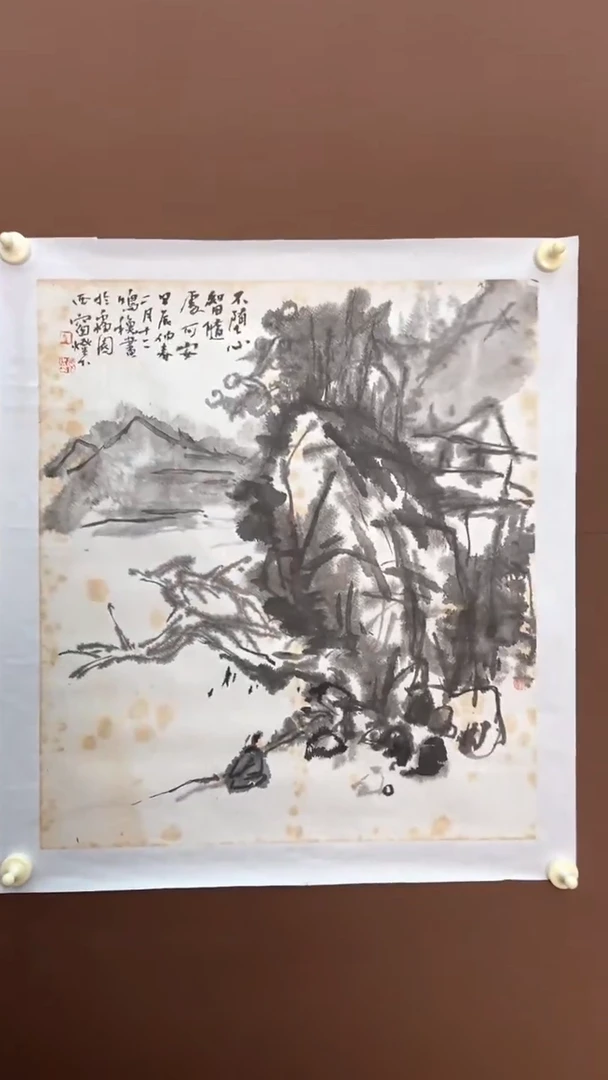 不心
智隨
處可安
甲辰仲春
二月十二
鳴畫
於園
西窗燈下